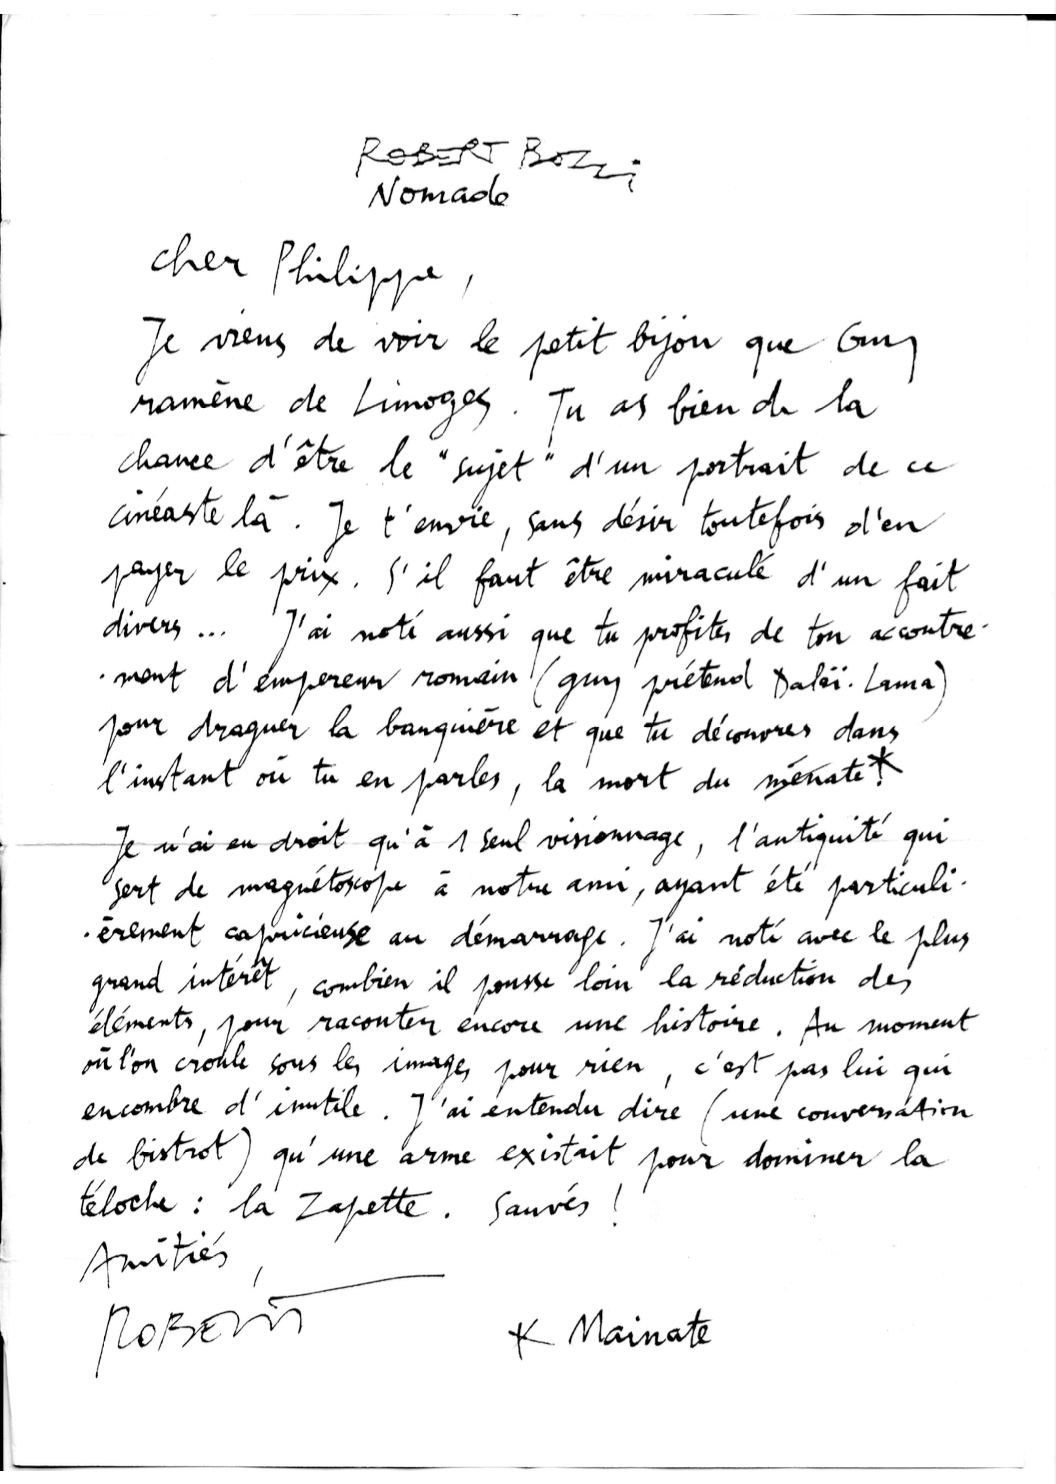 ROBERT BOZZI
Nomade
cher Philippe,
Je viens de voir le petit bijou que Guy
ramène de Limoges. Tu as bien de la
chance d'être le "sujet" d'un portrait de ce
cinéaste là. Je t'envie, sans désir toutefois d'en
payer le prix. S'il faut être miraculé d'un fait
divers... J'ai noté aussi que tu profites de ton accoutre-
-ment d'empereur romain (guy prétend Dalaï-Lama)
pour draguer la banquière et que tu découvres dans
l'instant où tu en parles, la mort du ménate*.
Je n'ai eu droit qu'à 1 seul visionnage, l'antiquité qui
sert de magnétoscope à notre ami, ayant été particuli-
-èrement capricieuse au démarrage. J'ai noté avec le plus
grand intérêt, combien il pousse loin la réduction des
éléments, pour raconter encore une histoire. Au moment
où l'on croule sous les images pour rien, c'est pas lui qui
encombre d'inutile. J'ai entendu dire (une conversation
de bistrot) qu'une arme existait pour dominer la
téloche : la Zapette. Sauvés !
Amitiés,
ROBERT
* Mainate